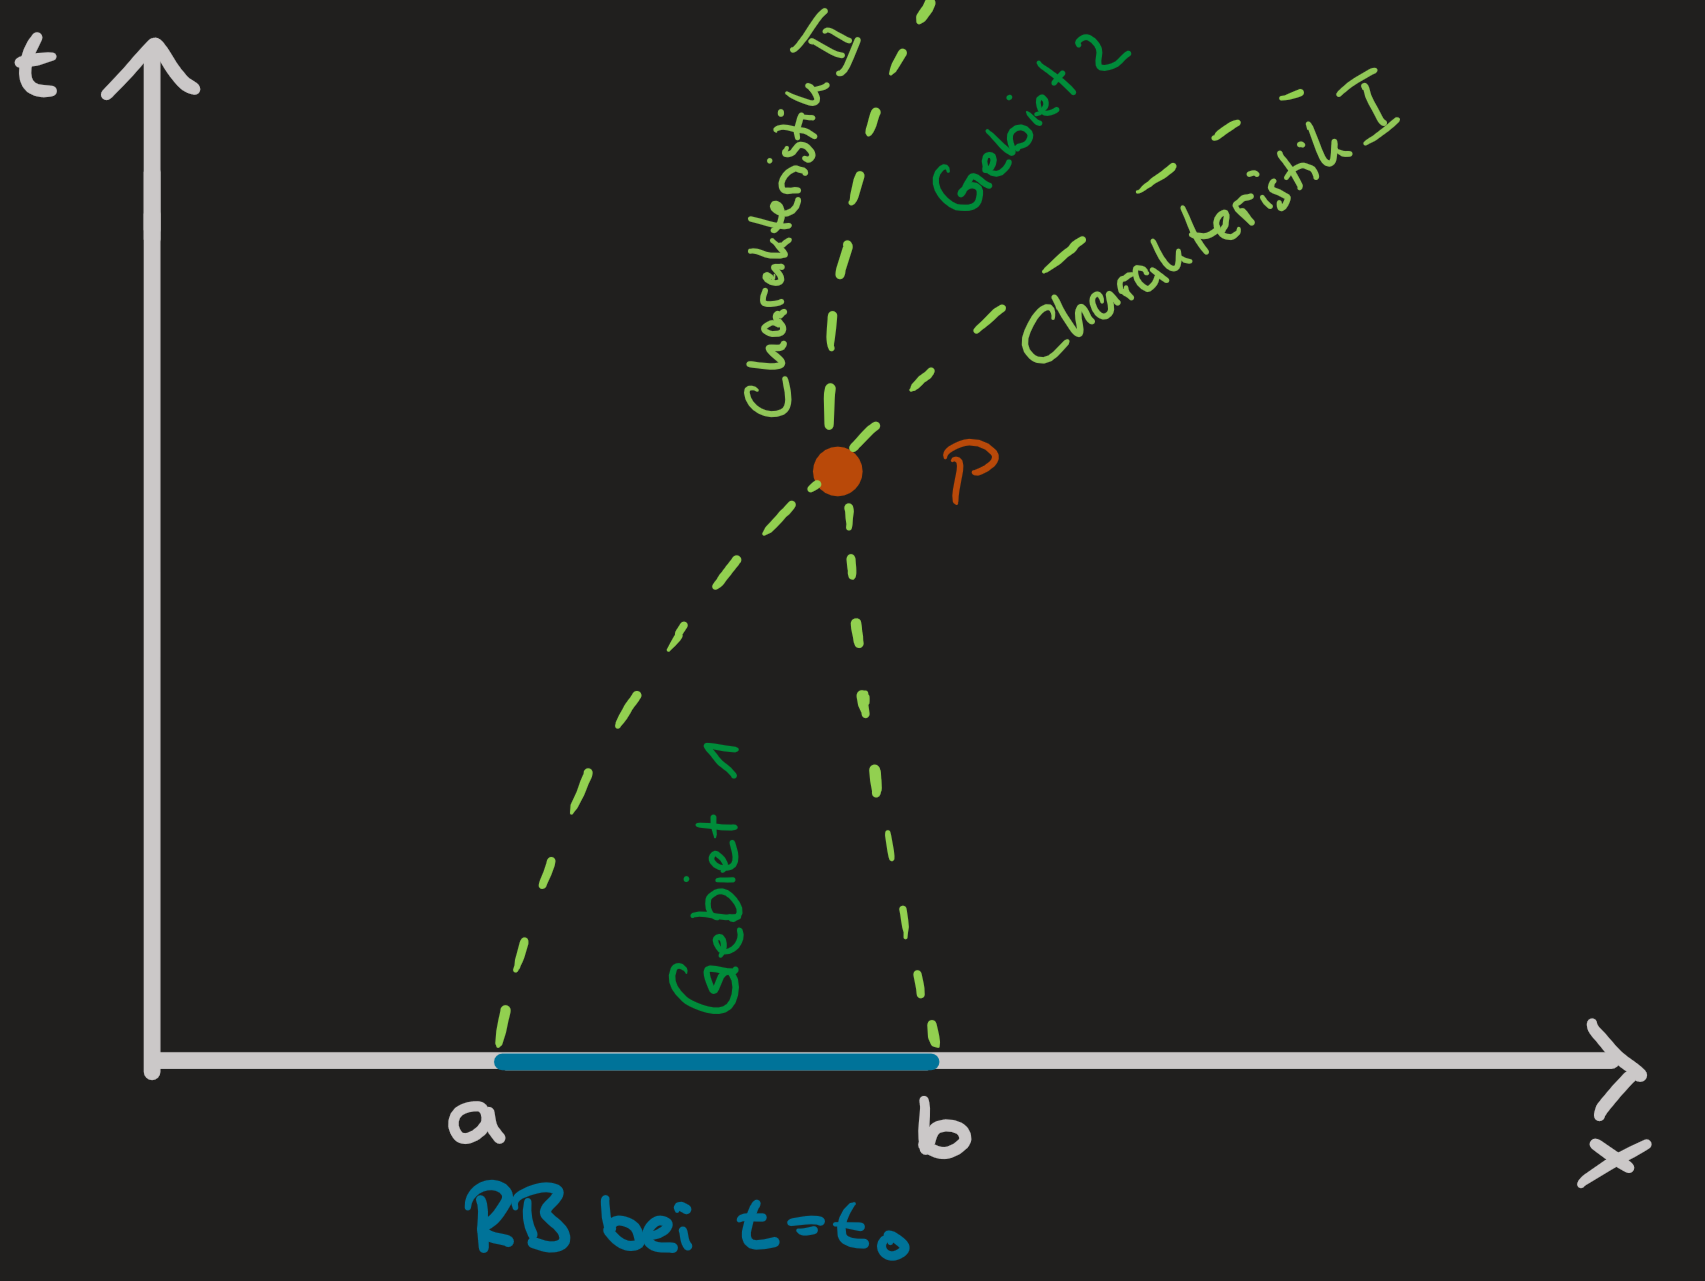 t
Charakteristik II
Gebiet 2
Charakteristik I
P
Gebiet 1
a
b
x
RB bei t=t₀